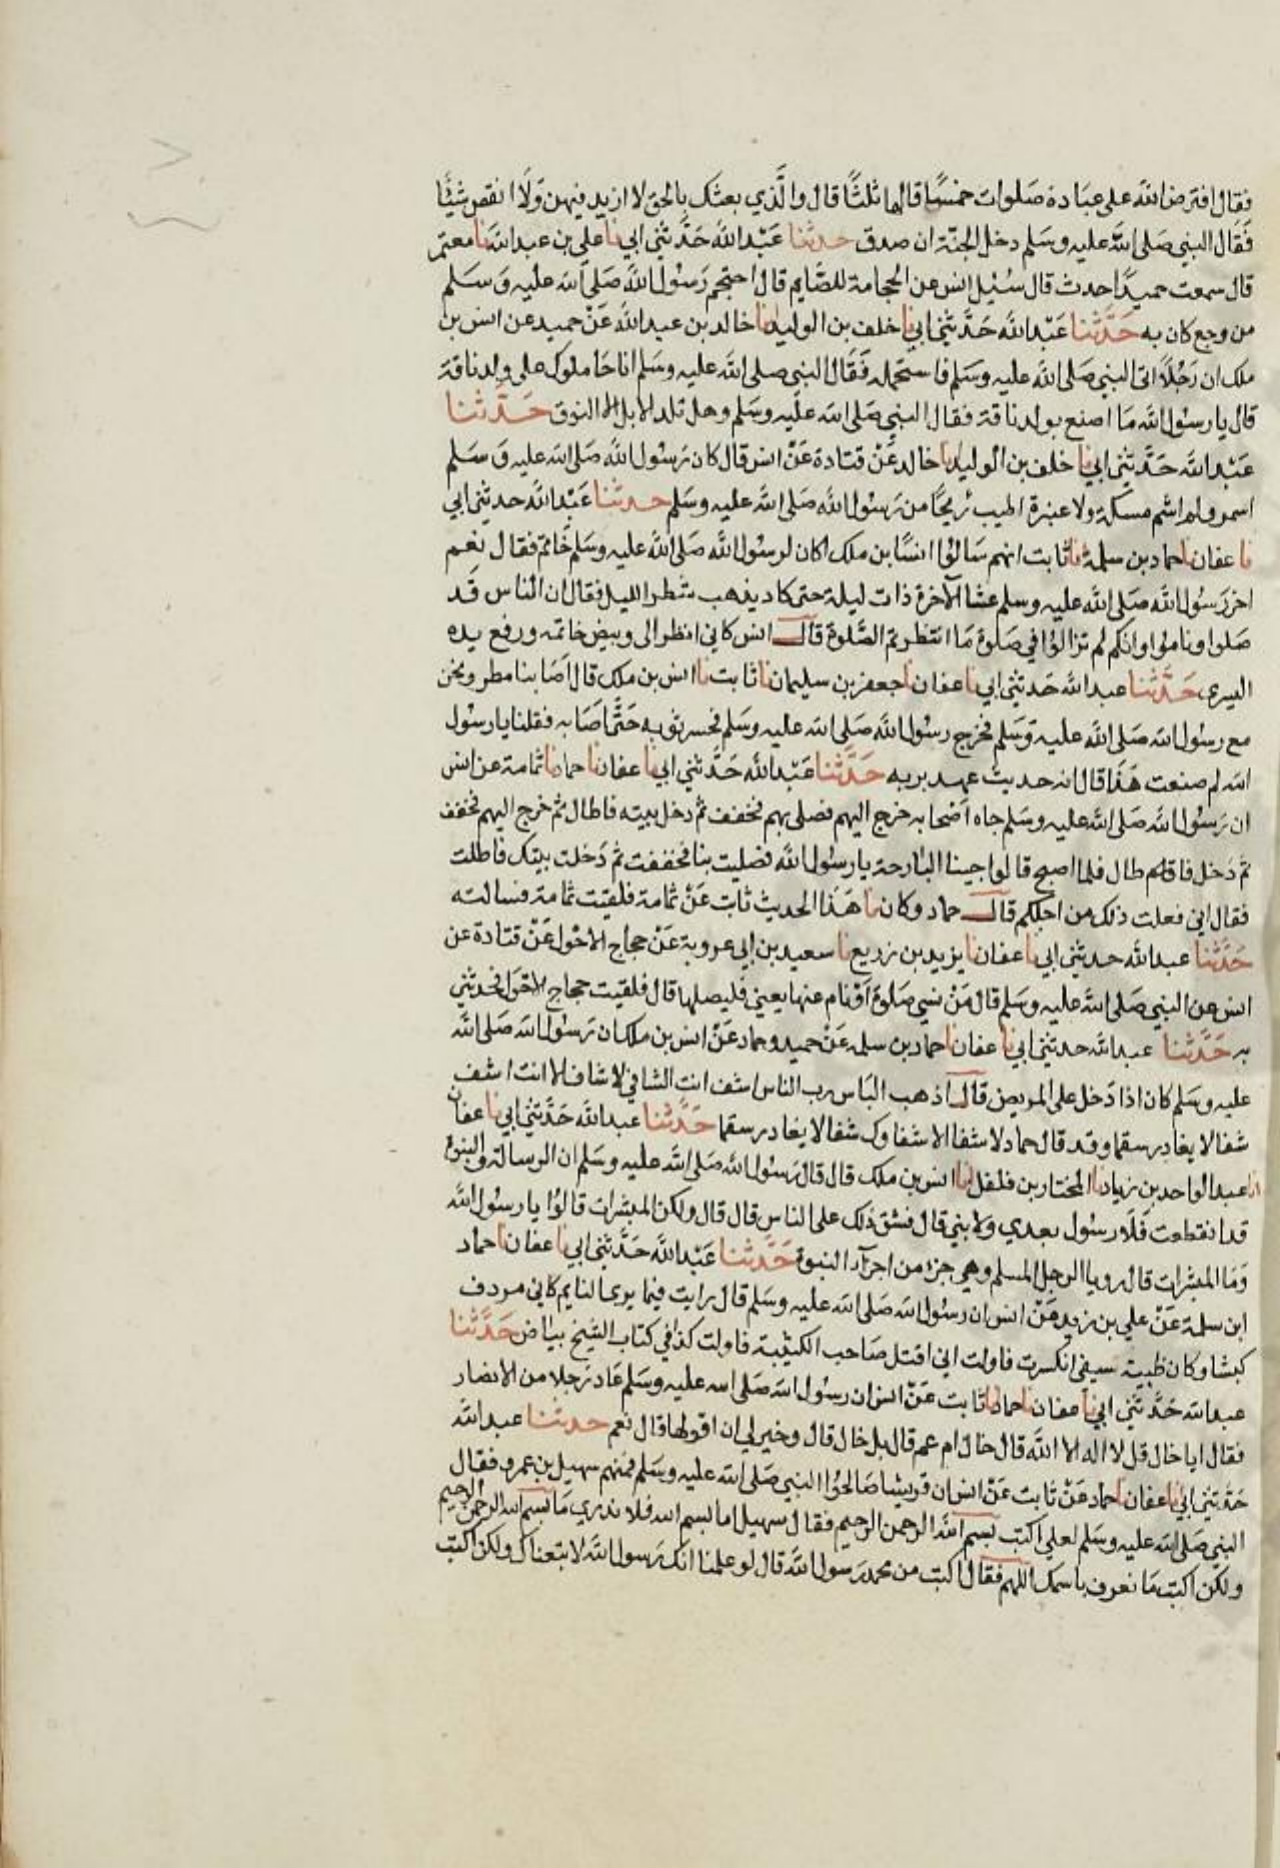 فقال افترض الله على عباده صلوات خمسًا قالها ثلثًا قال والَّذي بعثك بالحق لا ازيد فيهن وَلَا انقص شيئًا
فَقَال النبي صَلى الله عليه وسَلم دخل الجنّة ان صدق حدثنا عَبْد الله حَدَّثني ابي نا علي بن عبد الله نا معتمر
قال سمعت حميدًا حدث قال سُئِل انس عن الحجامة للصَّايم قال احتجم رَسُول الله صَلى الله عليه وَسَلم
من وجع كان به حَدَّثنا عَبْد الله حَدَّثني ابي نا خلف بن الوليد نا خالد بن عبد الله عَنْ حميد عن انس بن
ملك ان رَجُلًا اتى النبي صَلى الله عليه وسَلم فاستحمله فَقَال النبي صلى الله عليه وسَلم انا حاملوك على ولد ناقة
قال يا رسُول الله مَا اصنع بولد ناقة فقال النبي صَلى الله عليه وسَلم وهل تلد الابل الا النوق حَدَّثنا
عَبْد الله حَدَّثني ابي نا خلف بن الوليد نا خالد عَنْ قتادة عَنْ انس قال كان رَسُول الله صَلى الله عليه وَسَلم
اسمر ولم اشم مسكة ولا عنبرة اطيب ريحًا من رَسُول الله صَلى الله عليه وسَلم حدثنا عَبْد الله حدثني ابي
نا عفان نا حماد بن سلمة نا ثابت انهم سَالوُا انسًا بن ملك اكان لرسُول الله صَلى الله عليه وسَلم خَاتم فقال نعم
اخر رَسُول الله صَلى الله عليه وسلم عشا الآخرة ذات ليلة حتى كاد يذهب شطر الليل فقال ان الناس قد
صَلوا وناموا وانكم لم تزالوُا في صَلوة مَا انتظرتم الصَّلوة قال انس كاني انظر الى وبيض خاتمه ورفع يده
اليسرى حَدَّثنا عبد الله حَدثني ابي نا عفان نا جعفر بن سليمان نا ثابت نا انس بن ملك قال اصَابنا مطر ونحن
مع رسُول الله صَلى الله عليه وَسَلم فخرج رسُول الله صَلى الله عليه وسَلم فحسر ثوبه حَتَّى اصَابه فقلنا يا رسُول
الله لم صنعت هَذَا قال انه حديث عهد بربه حَدَّثنا عَبْد الله حَدَّثني ابي نا عفان نا حماد نا ثمامة عن انس
ان رَسُول الله صَلى الله عليه وسَلم جاه اصْحابه خرج اليهم فصلى بهم فخفف ثم دخل بيته فاطال ثم خرج اليهم فخفف
ثم دَخل فاقام طال فلما اصبح قالوا جينا البَارحة يا رسُول الله فصليت بنا فخففت ثم دَخلت بيتك فاطلت
فقال اني فعلت ذلك من اجلكم قال حماد وكان نا هَذَا الحديث ثابت عَنْ ثمامة فلقيت ثمامة فسالته
حَدَّثنا عبد الله حدثني ابي نا عفان نا يزيد بن زريع نا سعيد بن ابي عروبة عَنْ حجاج الاحْول عَنْ قتادة عن
انس عن النبي صَلى الله عليه وسَلم قال مَنْ نسي صَلوة اوْنام عنها يعني فَليصلها قال فلقيت حجاج الاحْوَل فحدثني
به حَدَّثنا عبد الله حدثني ابي نا عفان نا حماد بن سلمه عَنْ حميد وحماد عَنْ انس بن ملك ان رَسُول الله صَلى الله
عليه وسَلم كان اذا دَخل على المريض قال اذهب البَاس رب الناس اشف انت الشافي لا شاف الا انت اشف
شفا لا يغادر سقما وقد قال حماد لا شفا الا شفاوك شفا لا يغادر سقما حَدَّثنا عبد الله حَدَّثني ابي نا عفان
نا عبد الواحد بن زياد نا المختار بن فلفل نا انس بن ملك قال قال رَسُول الله صَلى الله عليه وسَلم ان الرسالة والنبوة
قد انقطعت فَلَا رسُول بعدي وَلا بني قال فشق ذلك على الناس قال قال ولكن المبشرات قالوُا يا رسُول الله
وَمَا المبشرات قال رويا الرجل المسلم وهي جزء من اجزآ النبوة حَدَّثنا عَبْد الله حَدَّثني ابي نا عفان نا حماد
ابن سلمة عَنْ علي بن زيد عَنْ انس ان رسُول الله صَلى الله عليه وسَلم قال رايت فيما يرى النايم كاني مردف
كبشا وكان ظبية سيفي انكسرت فاولت اني اقتل صَاحب الكتيبة فاولت كذا في كتاب الشيخ بيَاض حَدَّثنا
عبد الله حَدَّثني ابي نا عفان نا حماد نا ثابت عَنْ انس ان رسُول الله صَلى الله عليه وسَلم عَاد رَجلا من الانصَار
فقال ايا خال قل لا اله الا الله قال خال ام عم قال بل خال قال وخير لي ان اقولها قال نعم حدثنا عبد الله
حَدَّثني ابي نا عفان نا حماد عَنْ ثابت عَنْ انس ان قريشا صَالحوُا النبي صَلى الله عليه وسَلم فمنهم سهيل بن عمرو فقال
النبي صَلى الله عليه وسَلم لعلي اكتب بسم الله الرحمن الرحيم فقال سهيل اما بسم الله فلا ندري مَا بسم الله الرحمن الرحيم
ولكن اكتب مَا نعرف باسمك اللهم فقال اكتب من محمد رَسول الله قال لو علمنا انك رَسول الله لاتبعناك ولكن اكتب